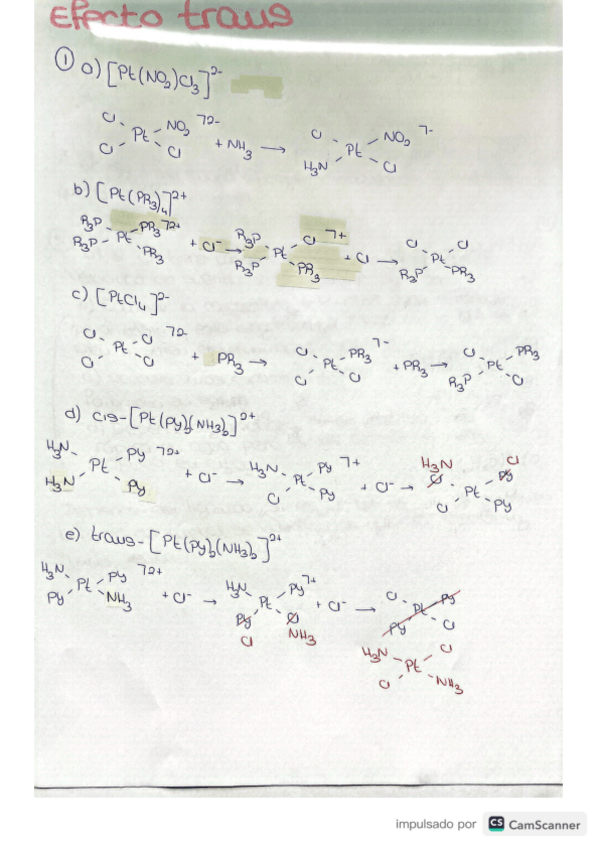 Efecto trans
① a) [Pt(NO2)Cl3]2-
Cl Pt NO2 ⁊2- Cl Cl + NH3 → Cl Pt NO2 ⁊- H3N Cl
b) [Pt(PR3)4]2+
R3P Pt PR3 ⁊2+ R3P PR3 + Cl- → R3P Pt Cl ⁊+ R3P PR3 + Cl → Cl Pt Cl R3P PR3
c) [PtCl4]2-
Cl Pt Cl ⁊2- Cl Cl + PR3 → Cl Pt PR3 ⁊- Cl Cl + PR3 → Cl Pt PR3 R3P Cl
d) cis-[Pt(Py)2(NH3)2]2+
H3N Pt Py ⁊2+ H3N Py + Cl- → H3N Pt Py ⁊+ Cl Py + Cl- → H3N Cl Cl Pt Py Cl Py
e) trans-[Pt(Py)2(NH3)2]2+
H3N Pt Py ⁊2+ Py NH3 + Cl- → H3N Pt Py ⁊+ Py Cl Cl NH3 + Cl- → Cl Pt Py Py Cl
H3N Pt Cl Cl NH3
impulsado por CS CamScanner